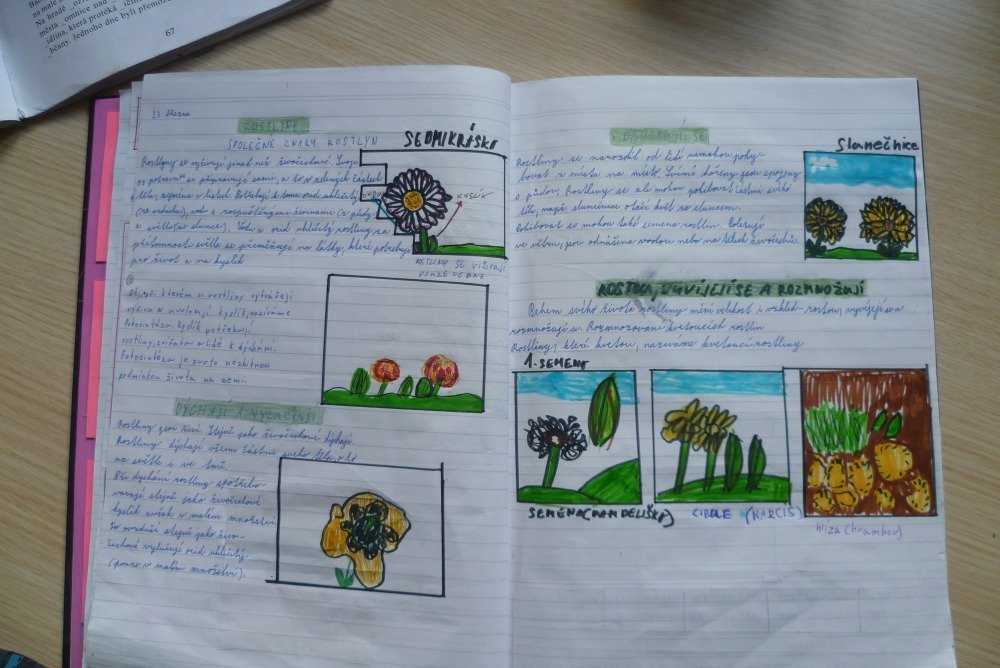 67
23 březen
ROSTLINY
SPOLEČNÉ ZNAKY ROSTLYN
Rostlyny se vyživují jinač než živočichové. Svoje
"potrava" se připravují sami, a to v zelených částech
těla, zejména v listech. Potřebují k tomu oxid uhličitý
(ze vzduchu), vodu s rozpuštěnými živinami (z půdy)
a světlo (ze slunce). Vodu a oxid uhličitý rostliny, za
přítomnosti světla se přeměňují na látky, které potřebují
pro život a na kyslík
SEDMIKRÁSKA
KYSLÍK
ROSTLINY SE VYŽIVUJÍ
POUZE VE DNE
Děj, při kterém si rostliny vytvářejí
výživu a uvolnají kyslík, nazíváme
fotosintéza. Kyslík potřebují
rostliny, zvířata i lidé k dýchání.
Fotosintéza je proto nezbitnou
podmínkou života na zemi.
DÝCHAJÍ A VYLUČUJÍ
Rostliny jsou živé. Stejně jako živočichové dýchají.
Rostliny dýchají všemi částmi svého těla, a to
na světle i ve tmě.
Při dýchání rostliny spotřebo-
vavají stejně jako živočichové
kyslík avšak v malém množství
Do ovzduší stejně jako živo-
čichové vylučují oxid uhličitý
(pouze v malém množství).
POHYBUJÍ SE
Slunečnice
Rostliny se narozdíl od lidí nemohou pohy-
bovat z místa na místo. Svími kořeny jsou spojeny
s půdou. Rostliny se ale mohou pohibovat částmi svého
těla, např. slunečnice otáčí květ za sluncem.
Pohibovat se mohou také semena rostlin. Poletují
ve větru, jsou odnášena vodou nebo na tělech živočichů.
ROSTOU, VYVÍJEJÍ SE A ROZMNOŽUJÍ
Během svého života rostliny mění velikost i vzhled - rostou, vyvíjejí se a
rozmnožují se. Rozmnožování kvetoucích rostlin
Rostliny, které kvetou, nazívame kvetoucí rostliny
1. SEMENY
SEMENA (PAMPELIŠKA)
CIBULE (NARCIS)
hlíza (brambor)